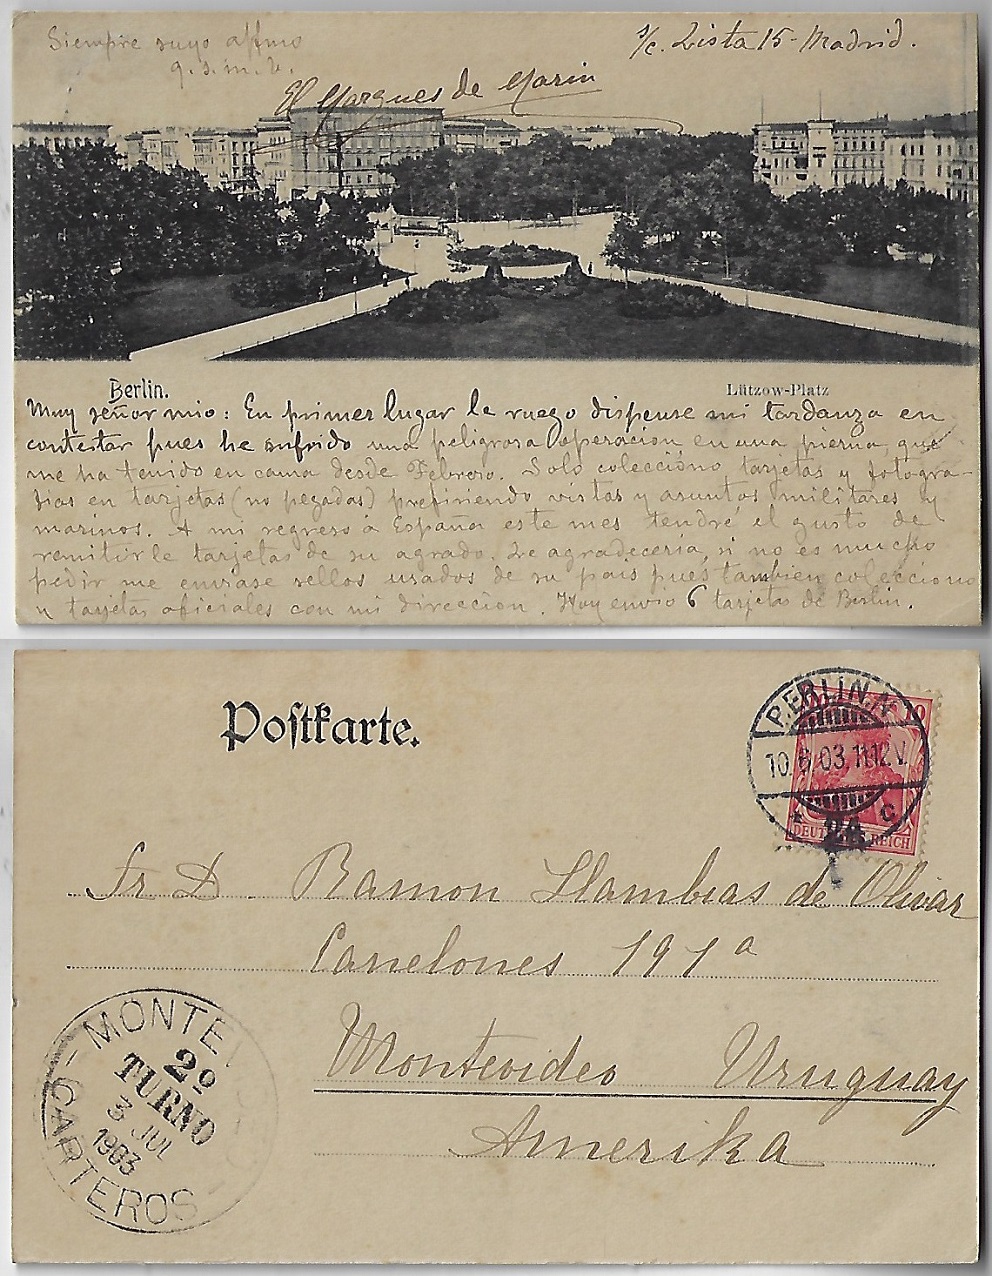 Siempre suyo affmo
q. s. m. b.
s/c. Lista 15 - Madrid.
El Marques de Marin
Berlin.
Lützow-Platz
Muy señor mio: En primer lugar le ruego dispense mi tardanza en
contestar pues he sufrido una peligrosa operacion en una pierna, que
me ha tenido en cama desde Febrero. Solo colecciono tarjetas y fotogra-
fias en tarjetas (no pegadas) prefiriendo vistas y asuntos militares y
marinos. A mi regreso á España este mes tendré el gusto de
remitirle tarjetas de su agrado. Le agradecería, si no es mucho
pedir me enviase sellos usados de su pais pues tambien colecciono
y tarjetas oficiales con mi direccion. Hoy envio 6 tarjetas de Berlin.
Postkarte.
BERLIN, N
10.6.03.11-12V.
* 24 c
10
DEUTSCHES REICH
Sr D. Ramon Llambias de Olivar
Canelones 191ª
Montevideo Uruguay
Amerika
MONTEV
2º
TURNO
3 JUL
1903
CARTEROS